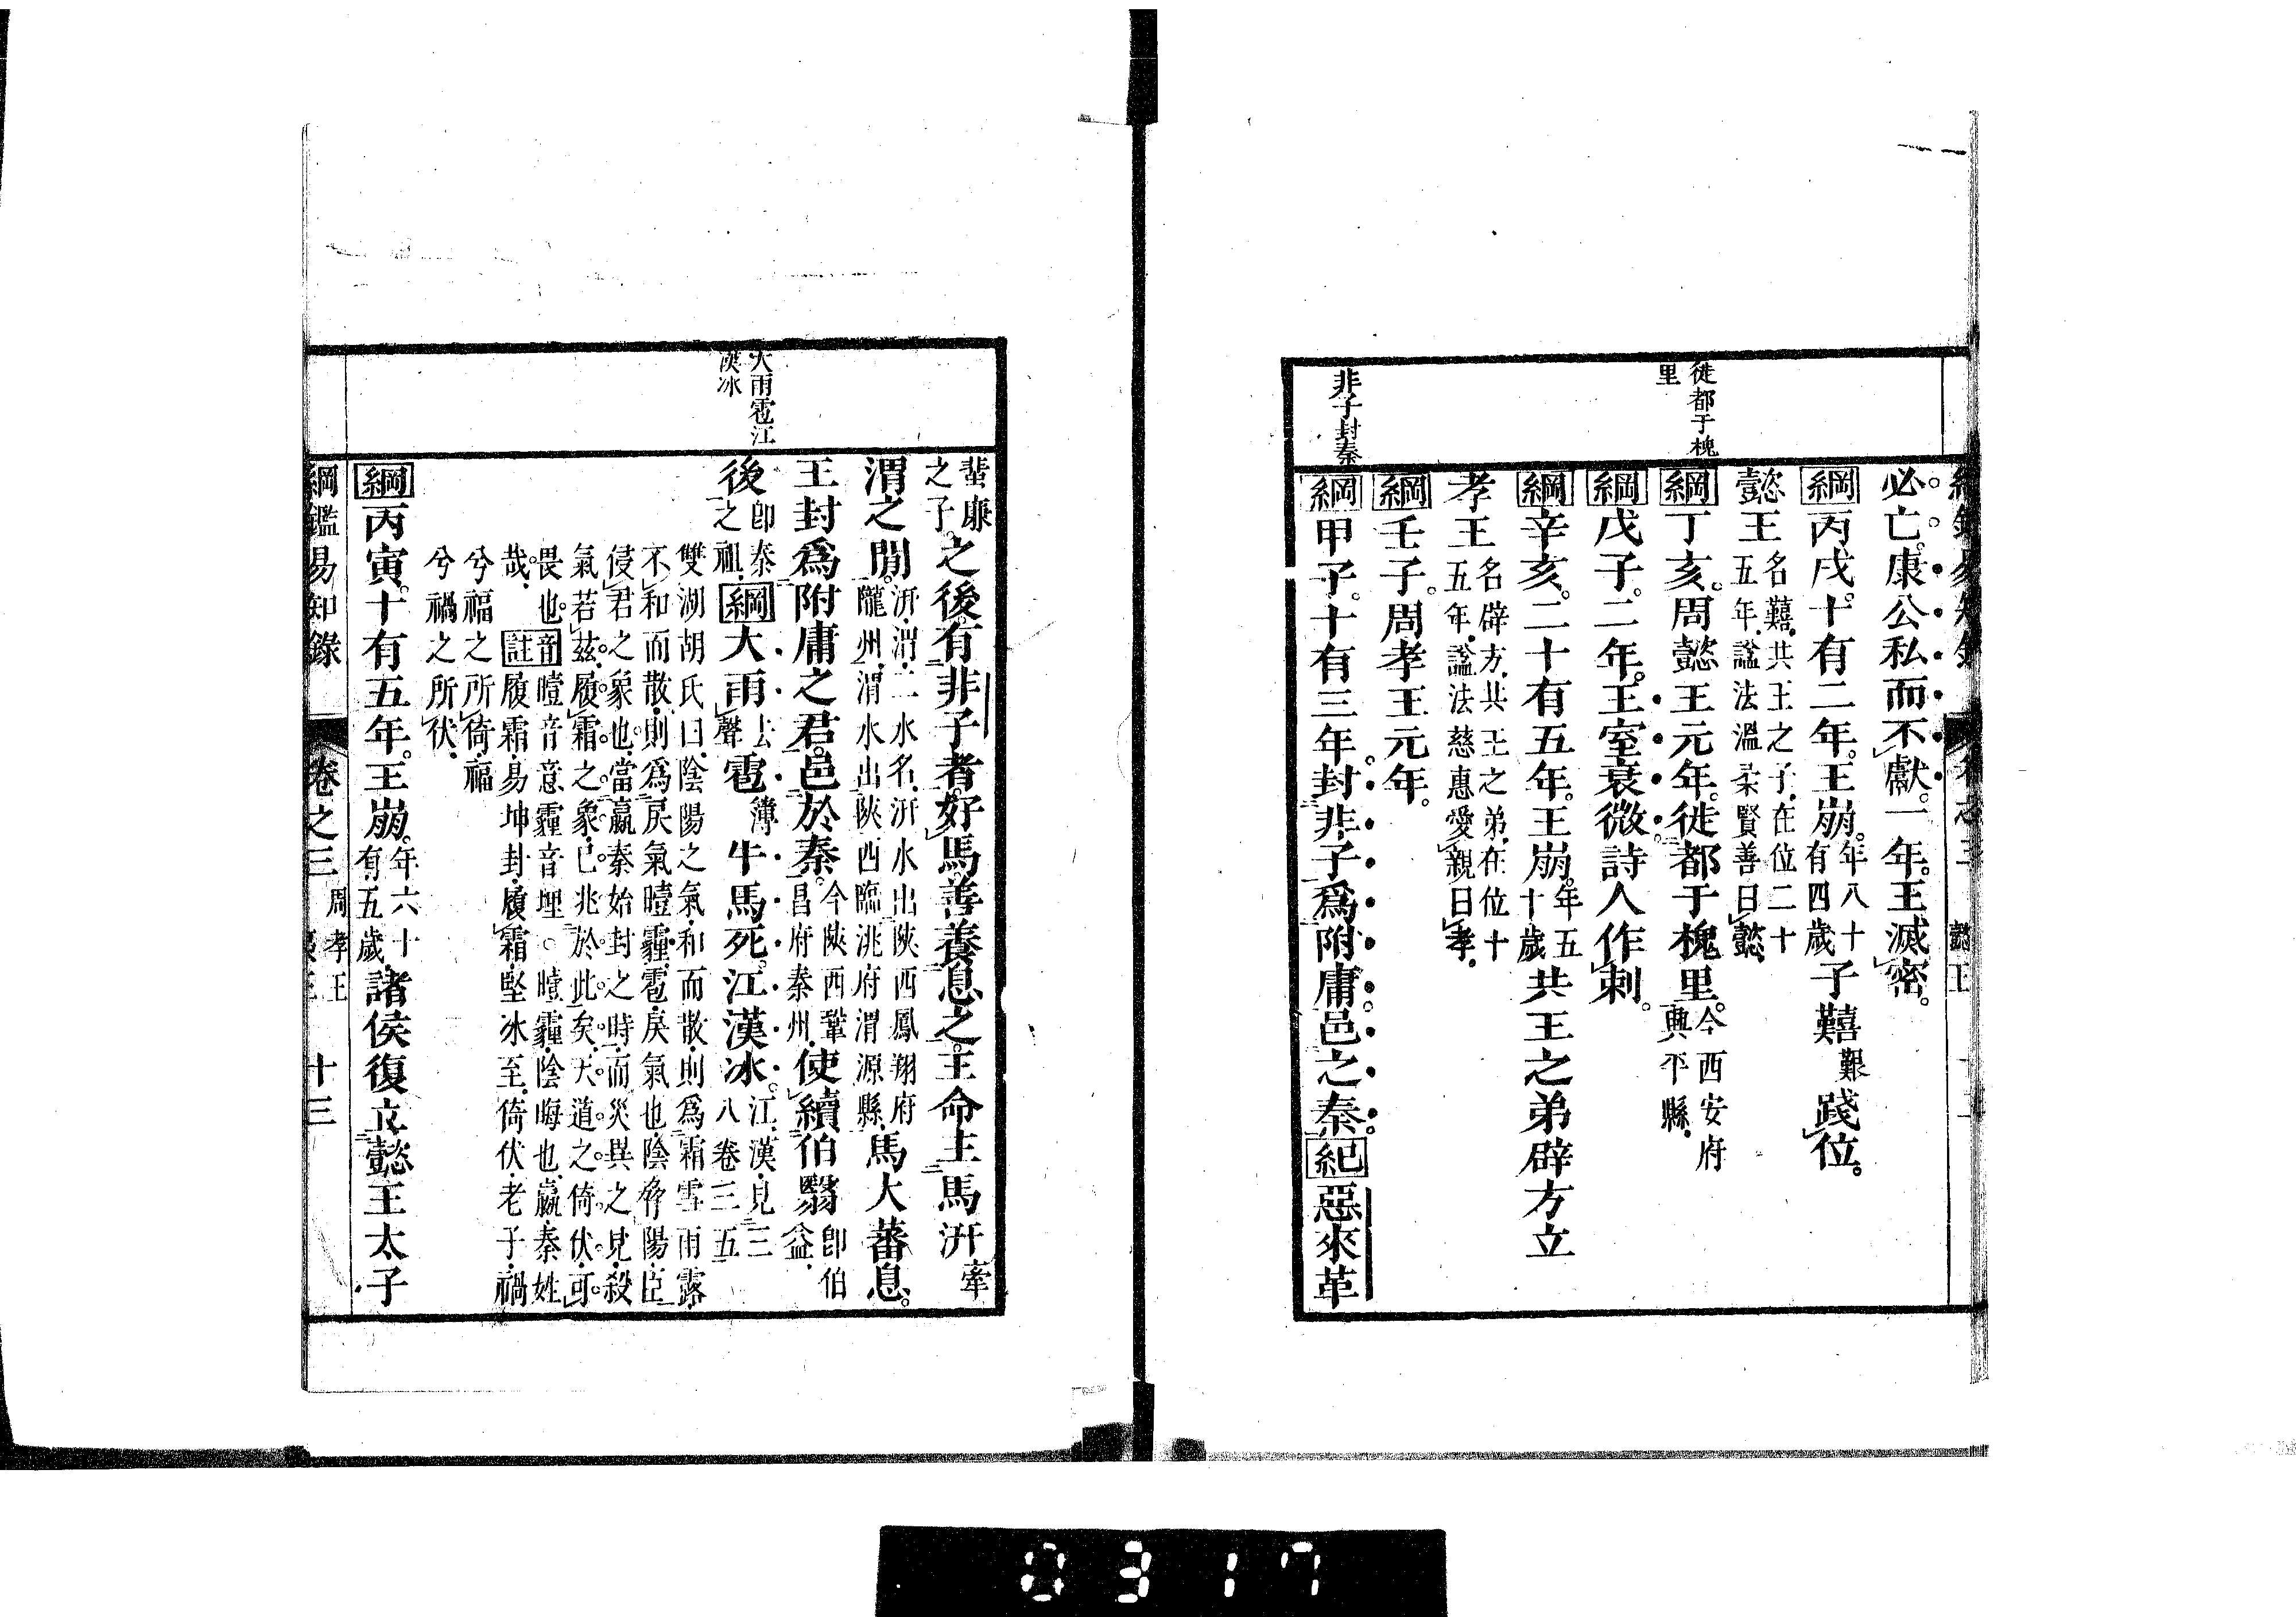 徙都于槐
里
非子封秦
懿王
必亡康公私而不獻一年王滅密
綱丙戌十有二年王崩年八十有四歲子囏艱踐位
懿王名囏共王之子在位二十五年諡法溫柔賢善曰懿
綱丁亥周懿王元年徙都于槐里今西安府興平縣
綱戊子二年王室衰微詩人作刺
綱辛亥二十有五年王崩年五十歲共王之弟辟方立
孝王名辟方共王之弟在位十五年諡法慈惠愛親曰孝
綱壬子周孝王元年
綱甲子十有三年封非子爲附庸邑之秦紀惡來革
大雨雹江
漢冰
蜚廉之子之後有非子者好馬善養息之王命主馬汧牽
渭之閒汧渭二水名汧水出陝西鳳翔府隴州渭水出陝西臨洮府渭源縣馬大蕃息
王封爲附庸之君邑於秦今陝西鞏昌府秦州使續伯翳卽伯益
後卽秦之祖綱大雨去聲雹薄牛馬死江漢冰江漢見三卷三五八
雙湖胡氏曰陰陽之氣和而散則爲霜雪雨露
不和而散則爲戾氣曀霾雹戾氣也陰脅陽臣
侵君之象也當嬴秦始封之時而災異之見殺
氣若茲履霜之象已兆於此矣天道之倚伏可
畏也音曀音意霾音埋○曀霾陰晦也嬴秦姓
哉註履霜易坤封履霜堅冰至倚伏老子禍
兮福之所倚福
兮禍之所伏
綱丙寅十有五年王崩年六十有五歲諸侯復立懿王太子
綱鑑易知錄 卷之三 周孝王 夷王 十三